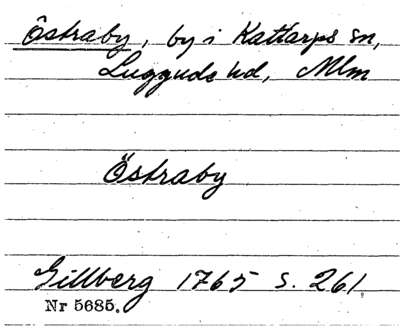 Östraby, by i Kattarps sn,
Luggude hd, Mlm
Östraby
Gillberg 1765 s. 261
Nr 5685.